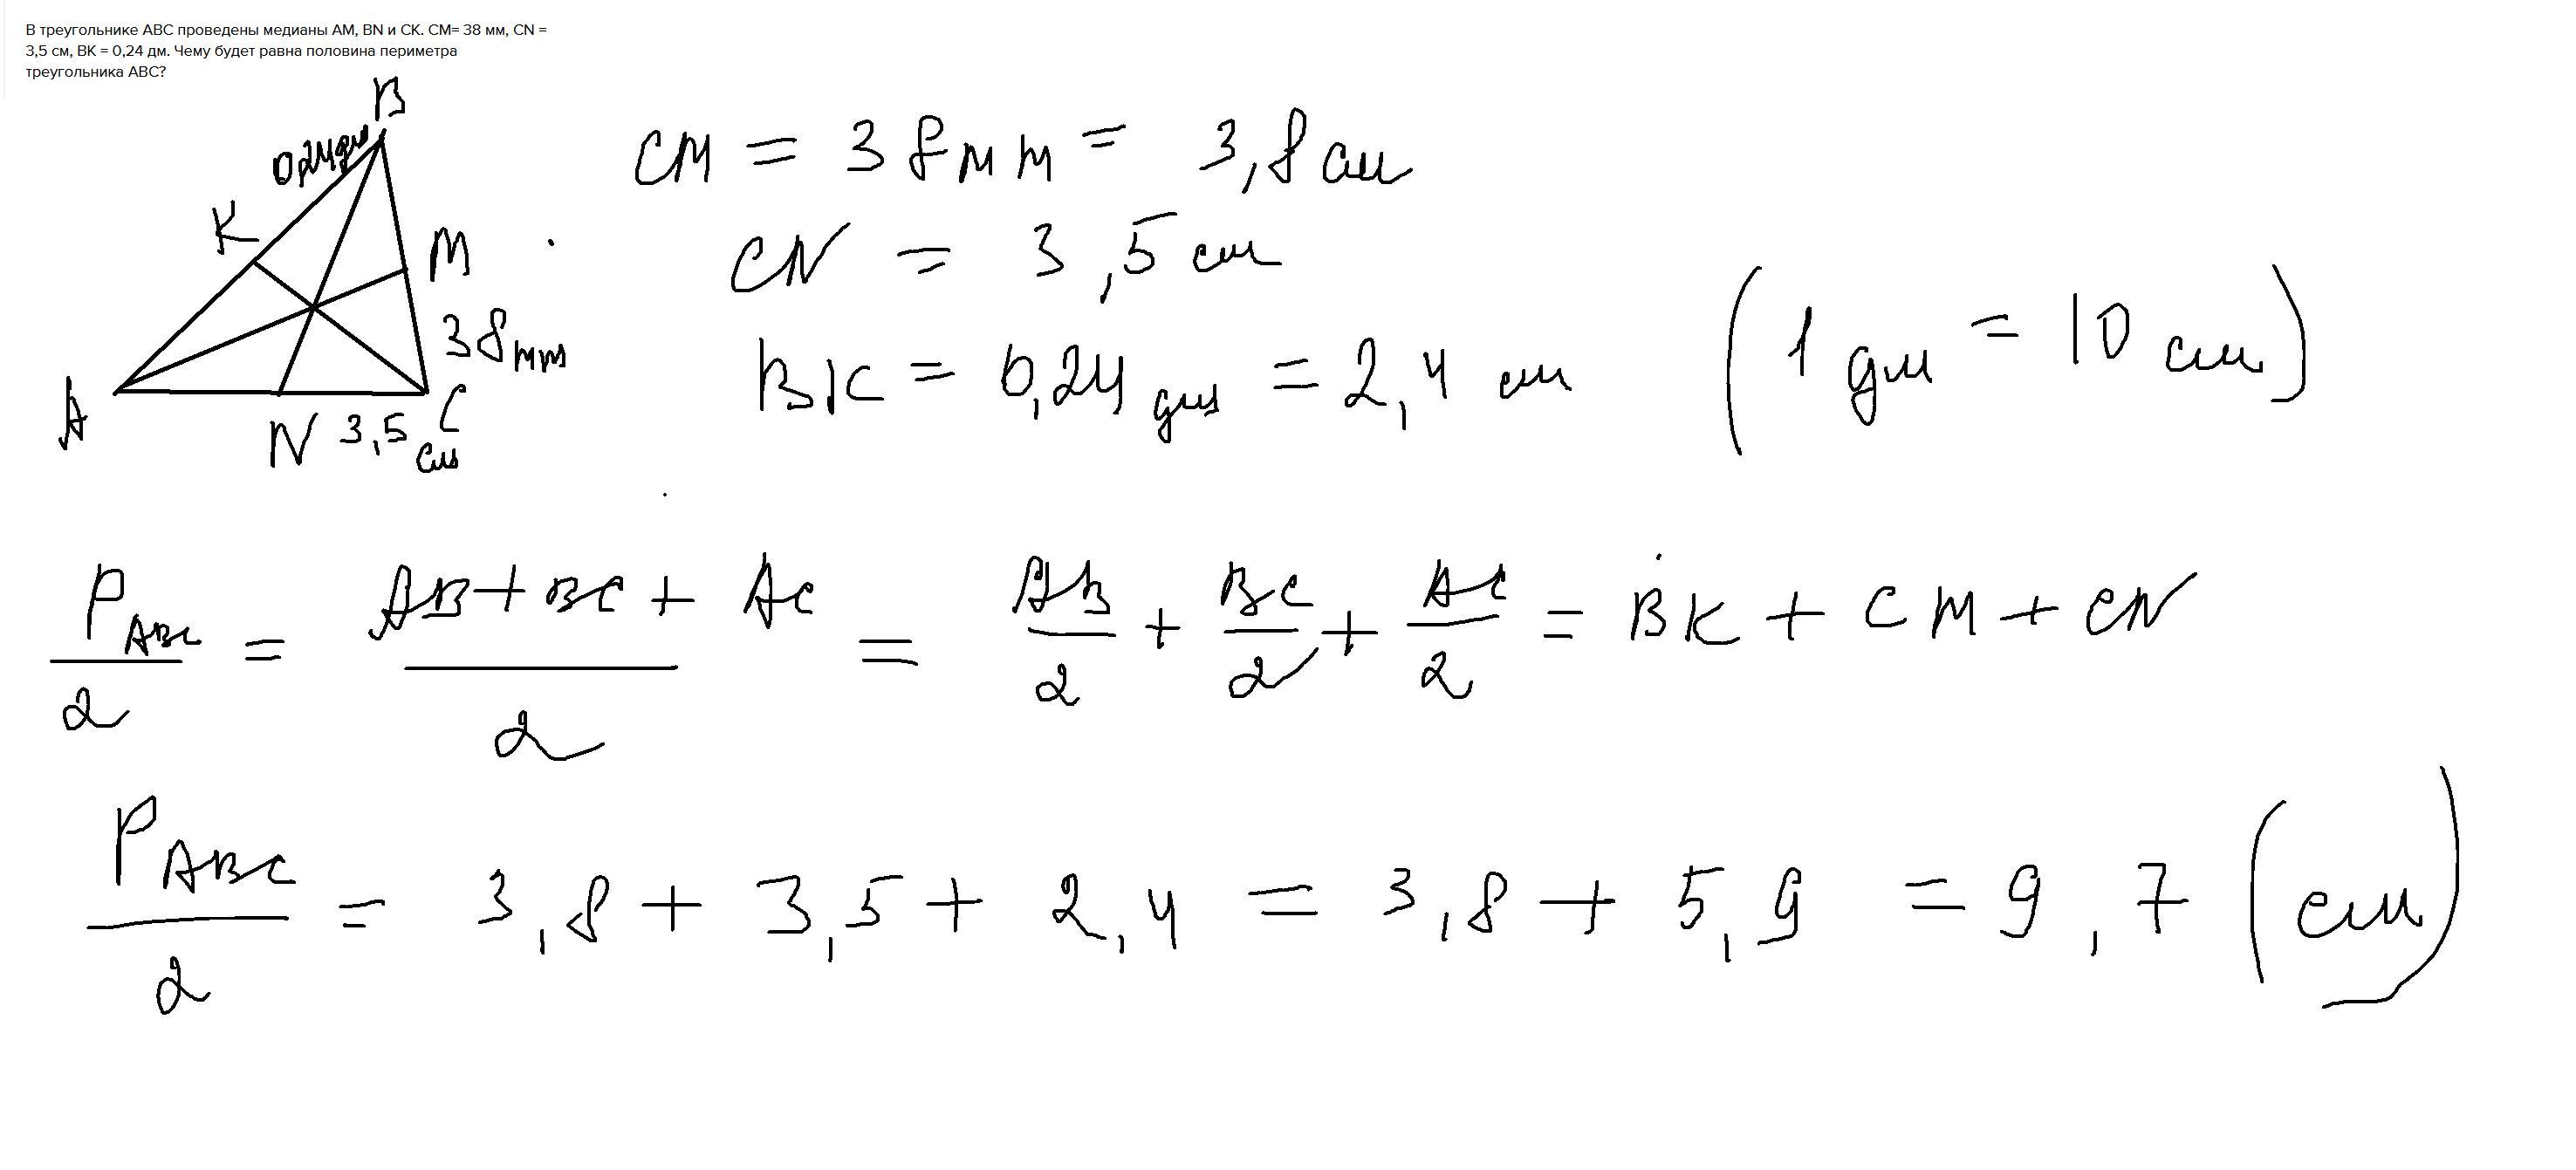 В треугольнике ABC проведены медианы AM, BN и CK. CM= 38 мм, CN =
3,5 см, BK = 0,24 дм. Чему будет равна половина периметра
треугольника ABC?
B
0,24 дм
K
M
38 мм
A
N 3,5 см
C
CM = 38 мм = 3,8 см
CN = 3,5 см
BK = 0,24 дм = 2,4 см (1 дм = 10 см)
P ABC / 2 = (AB + BC + AC) / 2 = AB/2 + BC/2 + AC/2 = BK + CM + CN
P ABC / 2 = 3,8 + 3,5 + 2,4 = 3,8 + 5,9 = 9,7 (см)